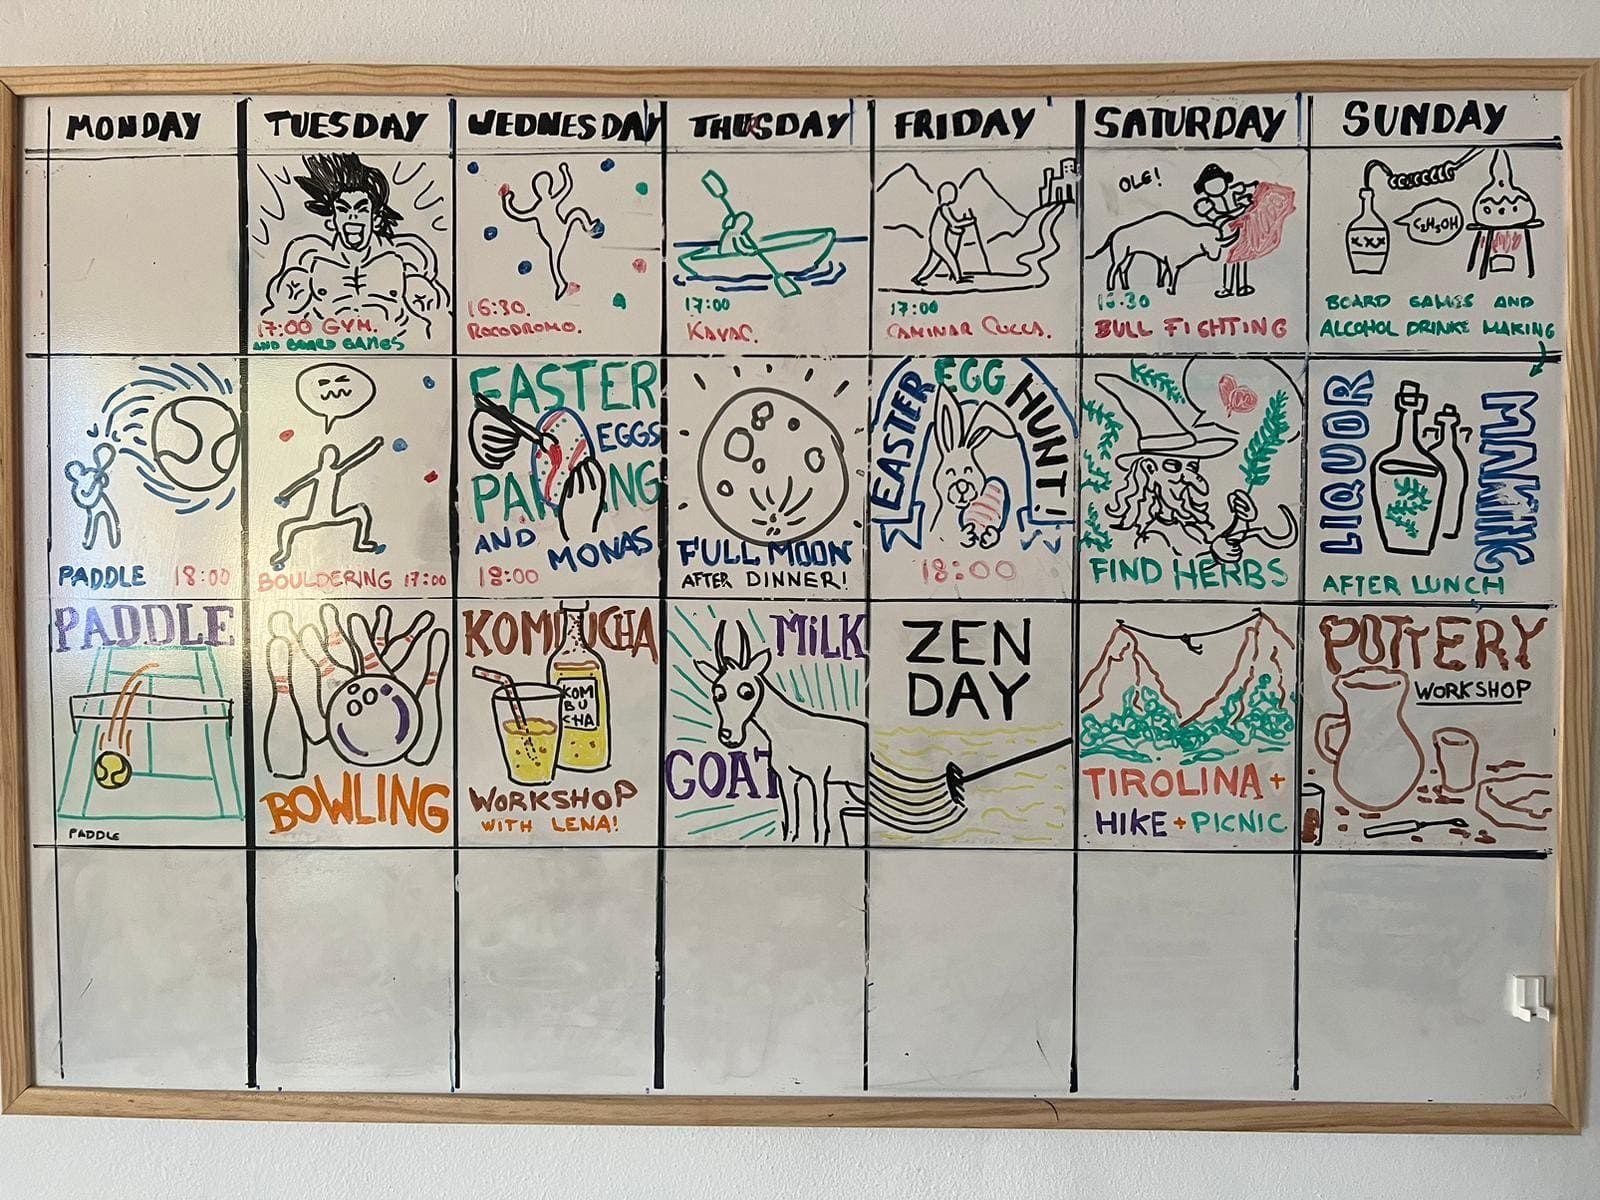 MONDAY
TUESDAY
WEDNESDAY
THUSDAY
FRIDAY
SATURDAY
SUNDAY
17:00 GYM.
AND BOARD GAMES
16:30.
ROCODROMO.
17:00
KAYAC.
17:00
CAMINAR
OLE!
16:30
BULL FIGHTING
C₂H₅OH
XXX
BOARD GAMES AND
ALCOHOL DRINKE MAKING
PADDLE 18:00
BOULDERING 17:00
EASTER
EGGS
PAINTING
AND MONAS
18:00
FULL MOON
AFTER DINNER!
EASTER EGG HUNT!
18:00
FIND HERBS
LIQUOR MAKING
AFTER LUNCH
PADDLE
PADDLE
BOWLING
KOMBUCHA
KOM
BU
CHA
WORKSHOP
WITH LENA!
MiLK
GOAT
ZEN
DAY
TIROLINA +
HIKE + PICNIC
POTTERY
WORKSHOP